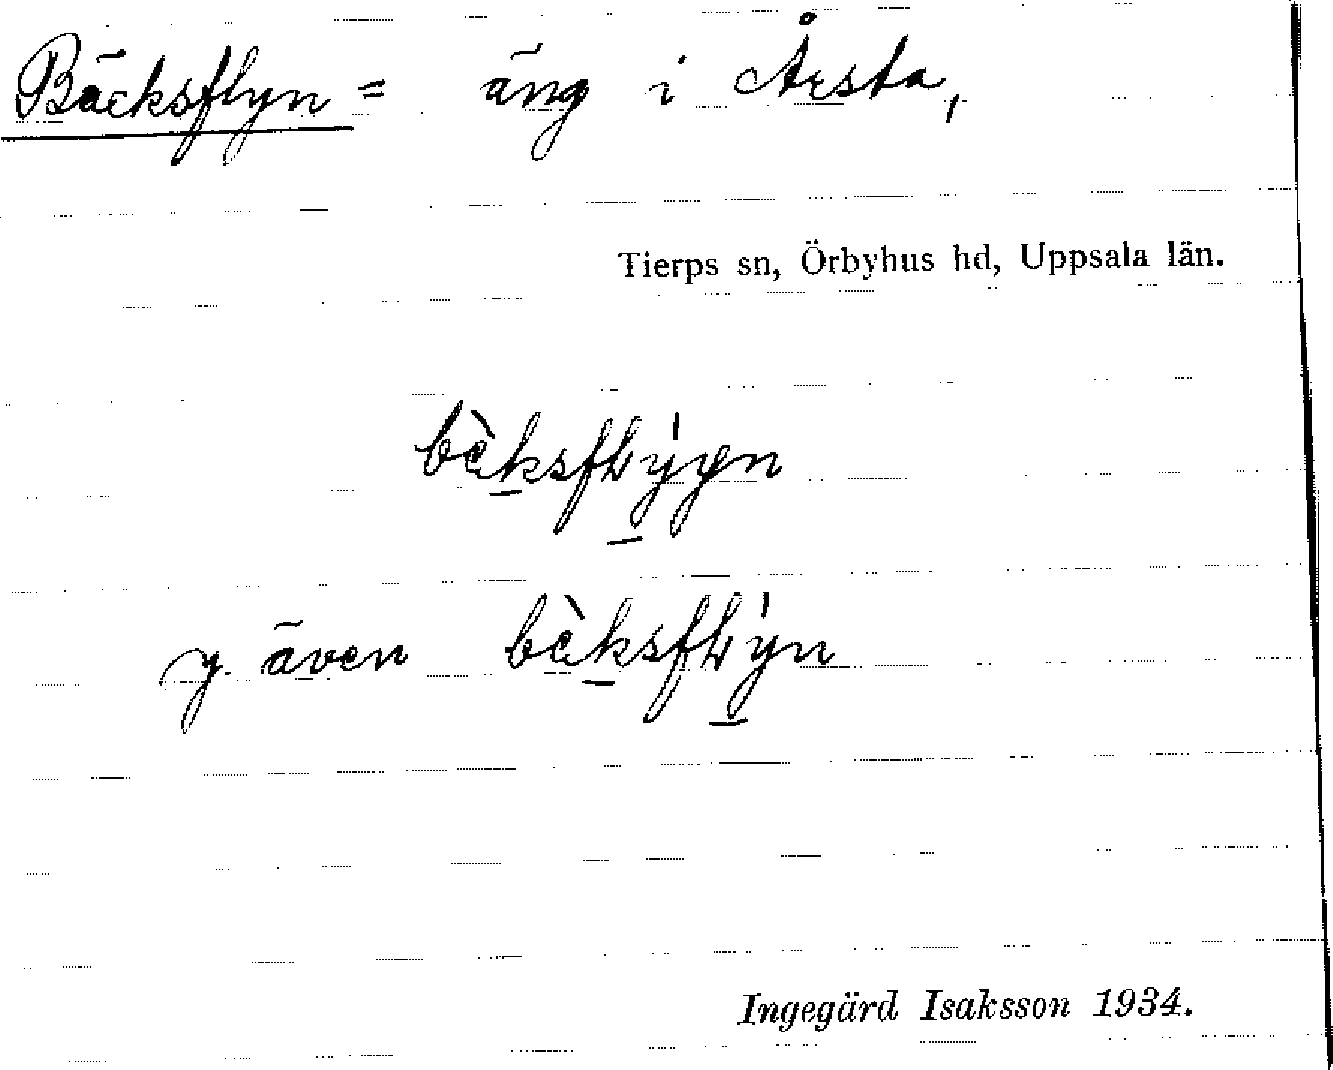 Bäcksflyn = äng i Årsta,
Tierps sn, Örbyhus hd, Uppsala län.
y. även
Ingegärd Isaksson 1934.